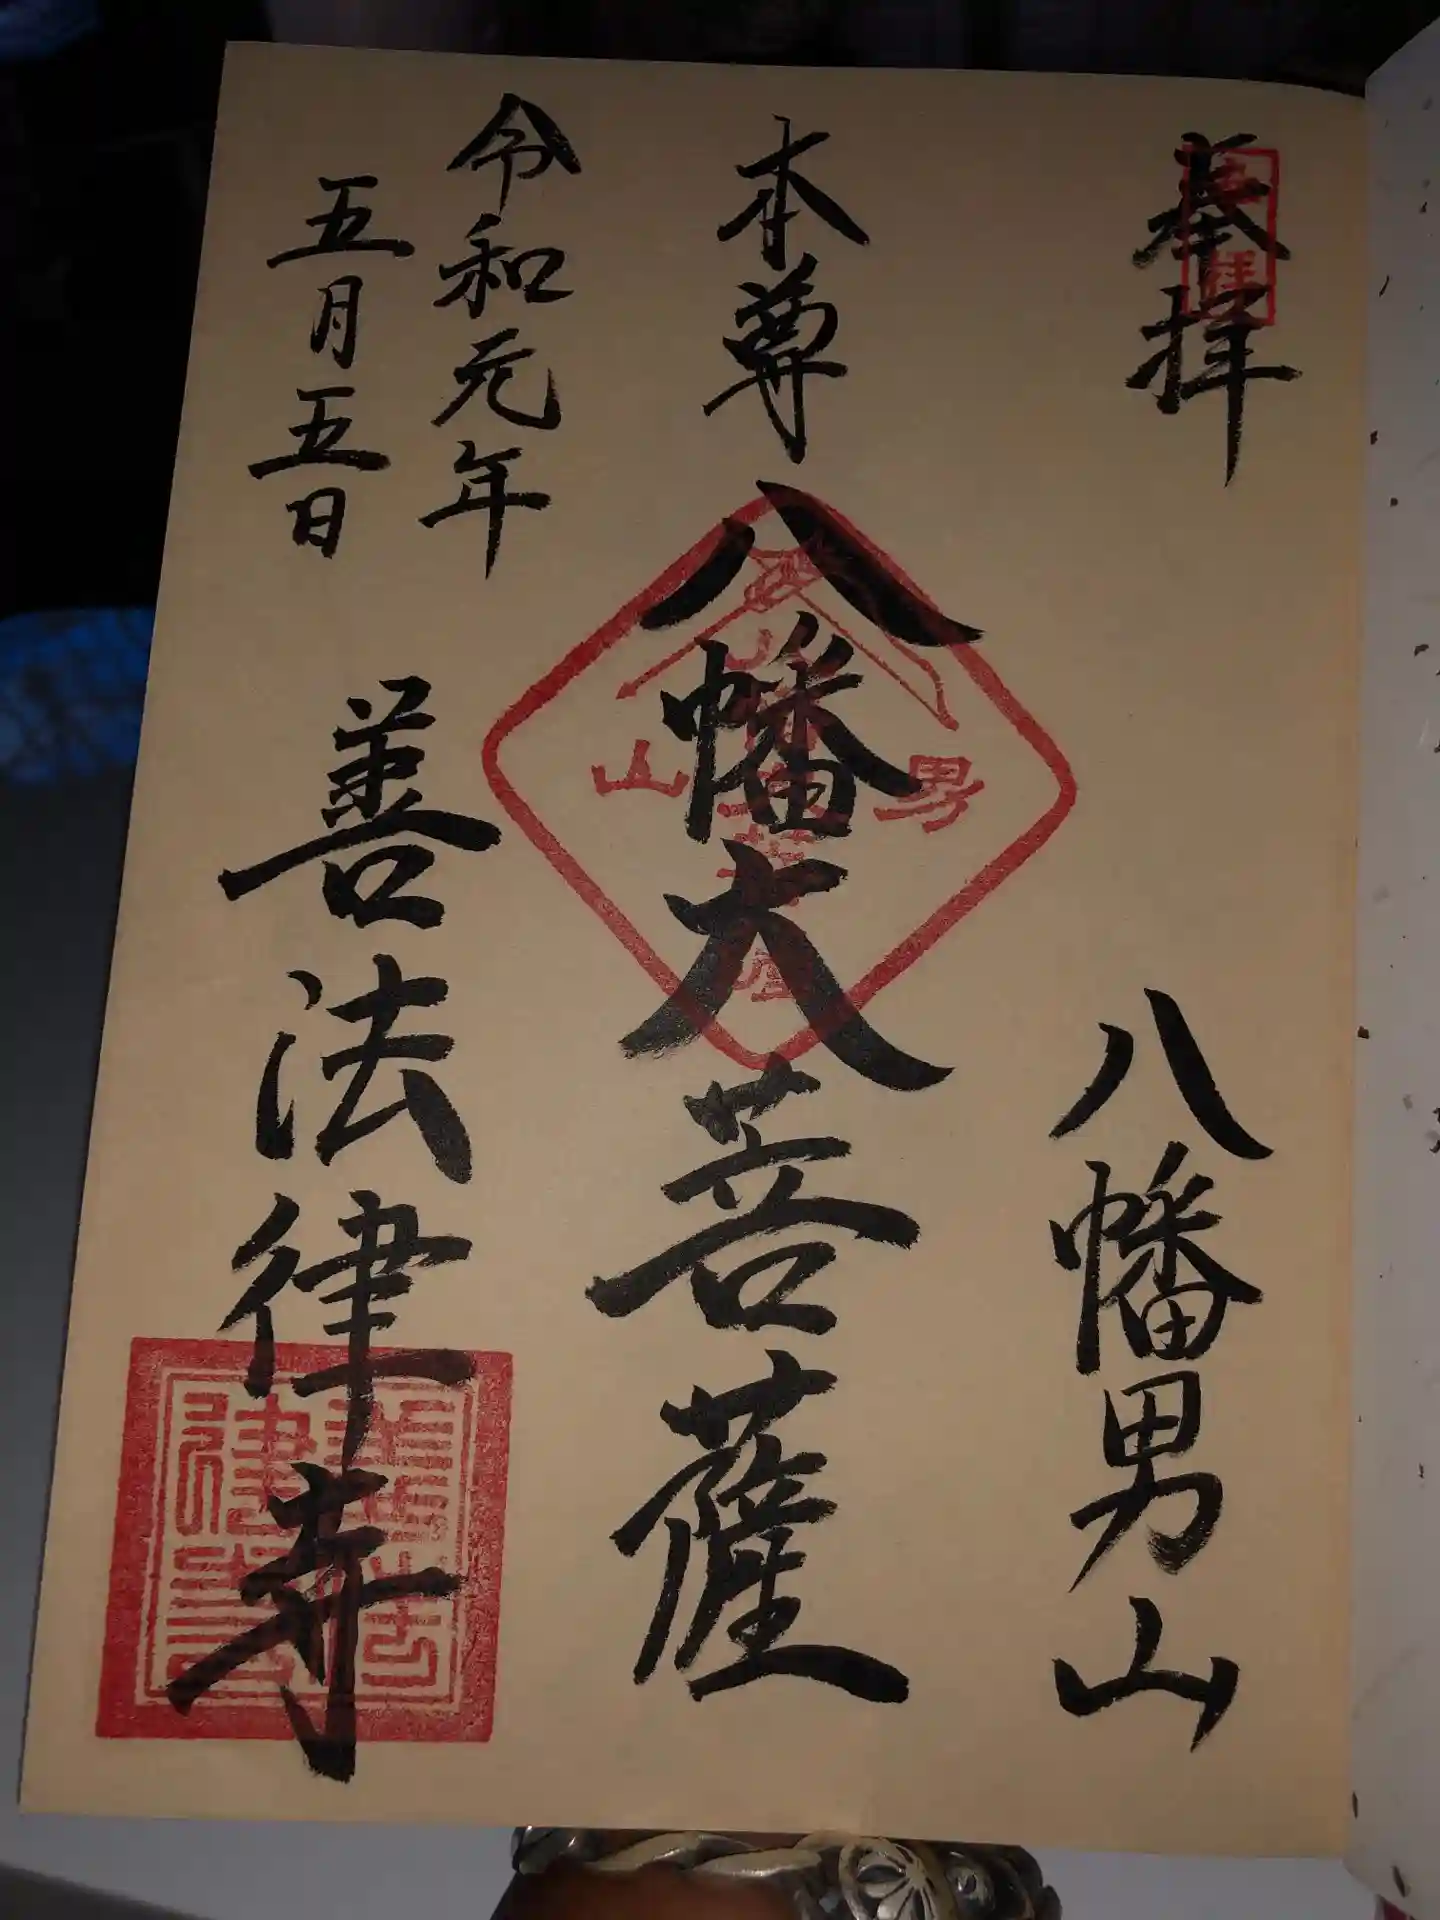 奉拝
八幡男山
本尊
八幡大菩薩
令和元年
五月五日
善法律寺
男
山
善法
律寺